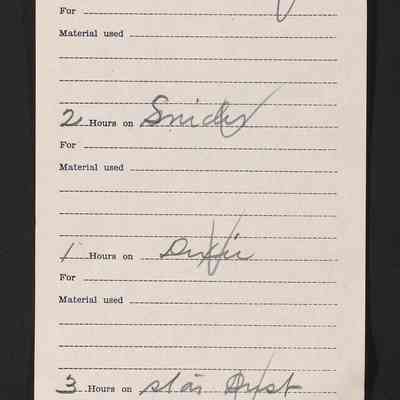 For
Material used
2 Hours on Snider
For
Material used
1 Hours on Dixie
For
Material used
3 Hours on Star Dust